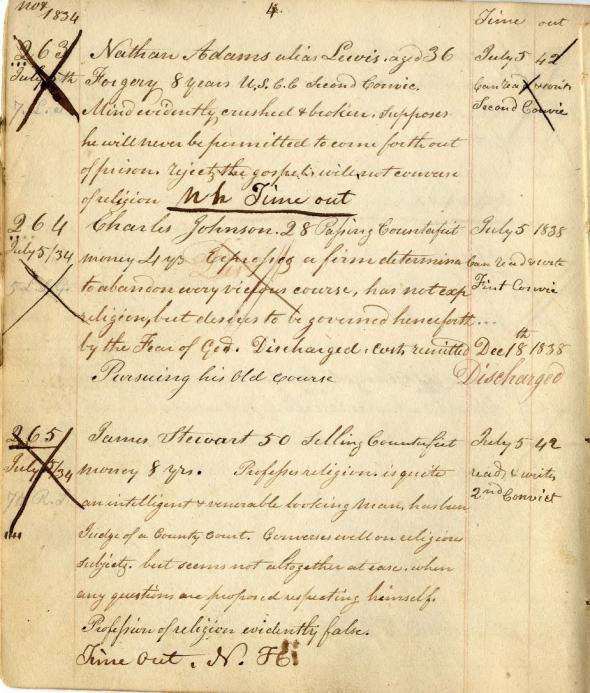 Nov 1834
4.
Time out
263
Nathan Adams alias Lewis. aged 36
July 5 42
July 5th
Forgery 8 years U.S.C.C Second Convic.
Can read & write
Mind evidently crushed & broken. Supposes
Second Convic
he will never be permitted to come forth out
of prison. rejects the gospel. will not converse
of religion Time out
264
Charles Johnson. 28 Passing Counterfeit
July 5 1838
July 5/34
money 4 ys Expresses a firm determina
Can read & writ
to abandon every vicious course, has not exp
First Convic
religion, but desires to be governed henceforth
by the Fear of God. Discharged, costs remitted
Dec 18th 1838
Pursuing his Old Course
Discharged
265
James Stewart 50 Selling Counterfeit
July 5 42
July 5/34
money 8 yrs. Professes religion. is quite
read & write
an intelligent & venerable looking man, has been
2nd Convict
Judge of a County Court. Converses well on religious
subjects. but seems not altogether at ease. when
any questions are proposed respecting himself.
Profession of religion evidently false.
Time Out. N. H